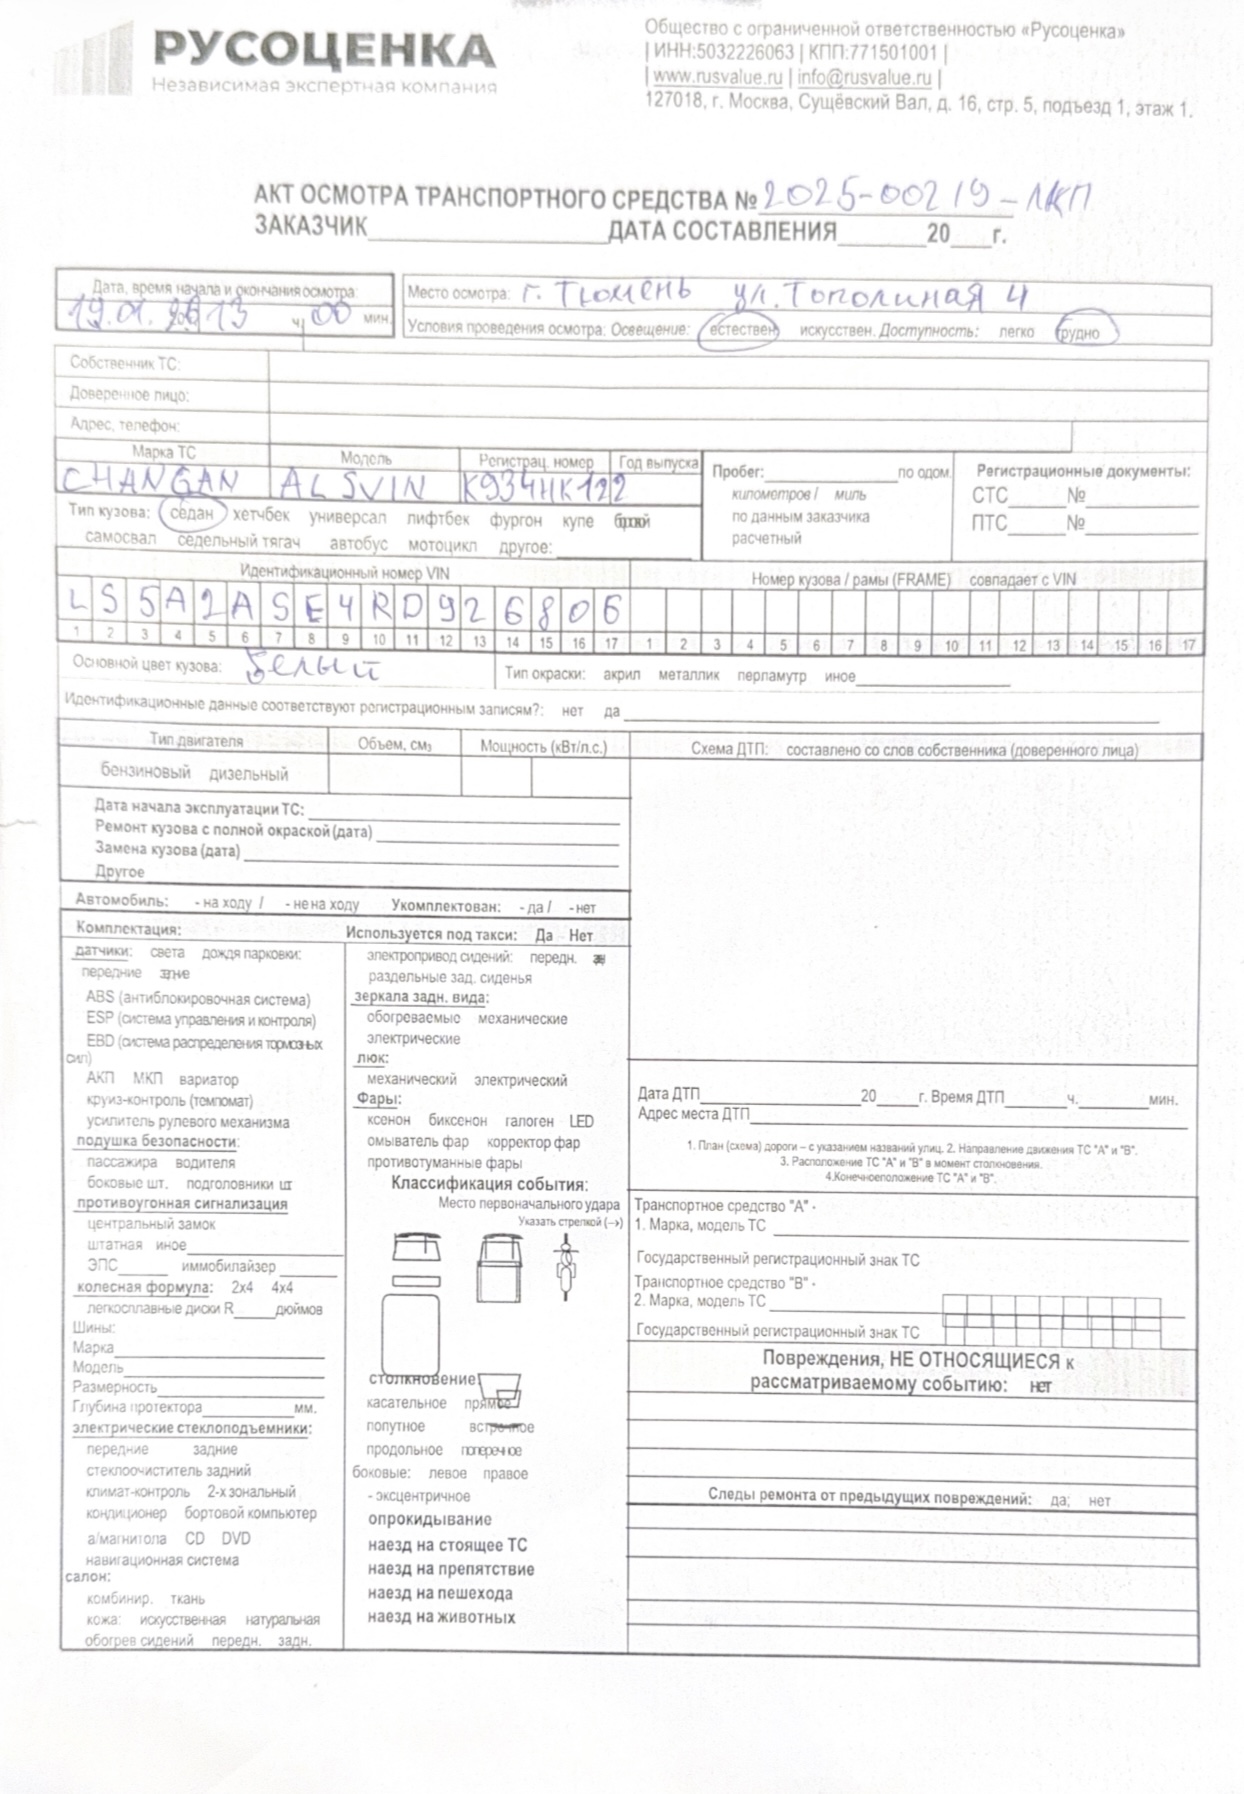 РУСОЦЕНКА
Независимая экспертная компания
Общество с ограниченной ответственностью «Русоценка»
| ИНН:5032226063 | КПП:771501001 |
| www.rusvalue.ru | info@rusvalue.ru |
127018, г. Москва, Сущёвский Вал, д. 16, стр. 5, подъезд 1, этаж 1.
АКТ ОСМОТРА ТРАНСПОРТНОГО СРЕДСТВА № 2025-00219-ЛКП
ЗАКАЗЧИК ДАТА СОСТАВЛЕНИЯ 20 г.
Дата, время начала и окончания осмотра:
19.01. 13 ч 00 мин.
Место осмотра: г. Тюмень ул. Тополиная 4
Условия проведения осмотра: Освещение: естествен искусствен. Доступность: легко трудно
Собственник ТС:
Доверенное лицо:
Адрес, телефон:
Марка ТС Модель Регистрац. номер Год выпуска
CHANGAN ALSVIN К934НК122
Пробег: по одом.
километров / миль
по данным заказчика
расчетный
Регистрационные документы:
СТС №
ПТС №
Тип кузова: седан хетчбек универсал лифтбек фургон купе
самосвал седельный тягач автобус мотоцикл другое:
Идентификационный номер VIN Номер кузова / рамы (FRAME) совпадает с VIN
LS5A2ASE4RD926806
1 2 3 4 5 6 7 8 9 10 11 12 13 14 15 16 17 1 2 3 4 5 6 7 8 9 10 11 12 13 14 15 16 17
Основной цвет кузова: Белый Тип окраски: акрил металлик перламутр иное
Идентификационные данные соответствуют регистрационным записям?: нет да
Тип двигателя Объем, см3 Мощность (кВт/л.с.)
бензиновый дизельный
Дата начала эксплуатации ТС:
Ремонт кузова с полной окраской (дата)
Замена кузова (дата)
Другое
Автомобиль: - на ходу / - не на ходу Укомплектован: - да / - нет
Комплектация:
датчики: света дождя парковки:
передние
ABS (антиблокировочная система)
ESP (система управления и контроля)
EBD (система распределения тормозных
сил)
АКП МКП вариатор
круиз-контроль (темпомат)
усилитель рулевого механизма
подушка безопасности:
пассажира водителя
боковые шт. подголовники шт
противоугонная сигнализация
центральный замок
штатная иное
ЭПС иммобилайзер
колесная формула: 2x4 4x4
легкосплавные диски R дюймов
Шины:
Марка
Модель
Размерность
Глубина протектора мм.
электрические стеклоподъемники:
передние задние
стеклоочиститель задний
климат-контроль 2-х зональный
кондиционер бортовой компьютер
а/магнитола CD DVD
навигационная система
салон:
комбинир. ткань
кожа: искусственная натуральная
обогрев сидений передн. задн.
Используется под такси: Да Нет
электропривод сидений: передн.
раздельные зад. сиденья
зеркала задн. вида:
обогреваемые механические
электрические
люк:
механический электрический
Фары:
ксенон биксенон галоген LED
омыватель фар корректор фар
противотуманные фары
Классификация события:
Место первоначального удара
Указать стрелкой (→)
столкновение
касательное прямое
попутное встречное
продольное поперечное
боковые: левое правое
- эксцентричное
опрокидывание
наезд на стоящее ТС
наезд на препятствие
наезд на пешехода
наезд на животных
Схема ДТП: составлено со слов собственника (доверенного лица)
Дата ДТП 20 г. Время ДТП ч. мин.
Адрес места ДТП
1. План (схема) дороги – с указанием названий улиц. 2. Направление движения ТС "А" и "В".
3. Расположение ТС "А" и "В" в момент столкновения.
4.Конечноеположение ТС "А" и "В".
Транспортное средство "А" -
1. Марка, модель ТС
Государственный регистрационный знак ТС
Транспортное средство "В" -
2. Марка, модель ТС
Государственный регистрационный знак ТС
Повреждения, НЕ ОТНОСЯЩИЕСЯ к
рассматриваемому событию: нет
Следы ремонта от предыдущих повреждений: да; нет